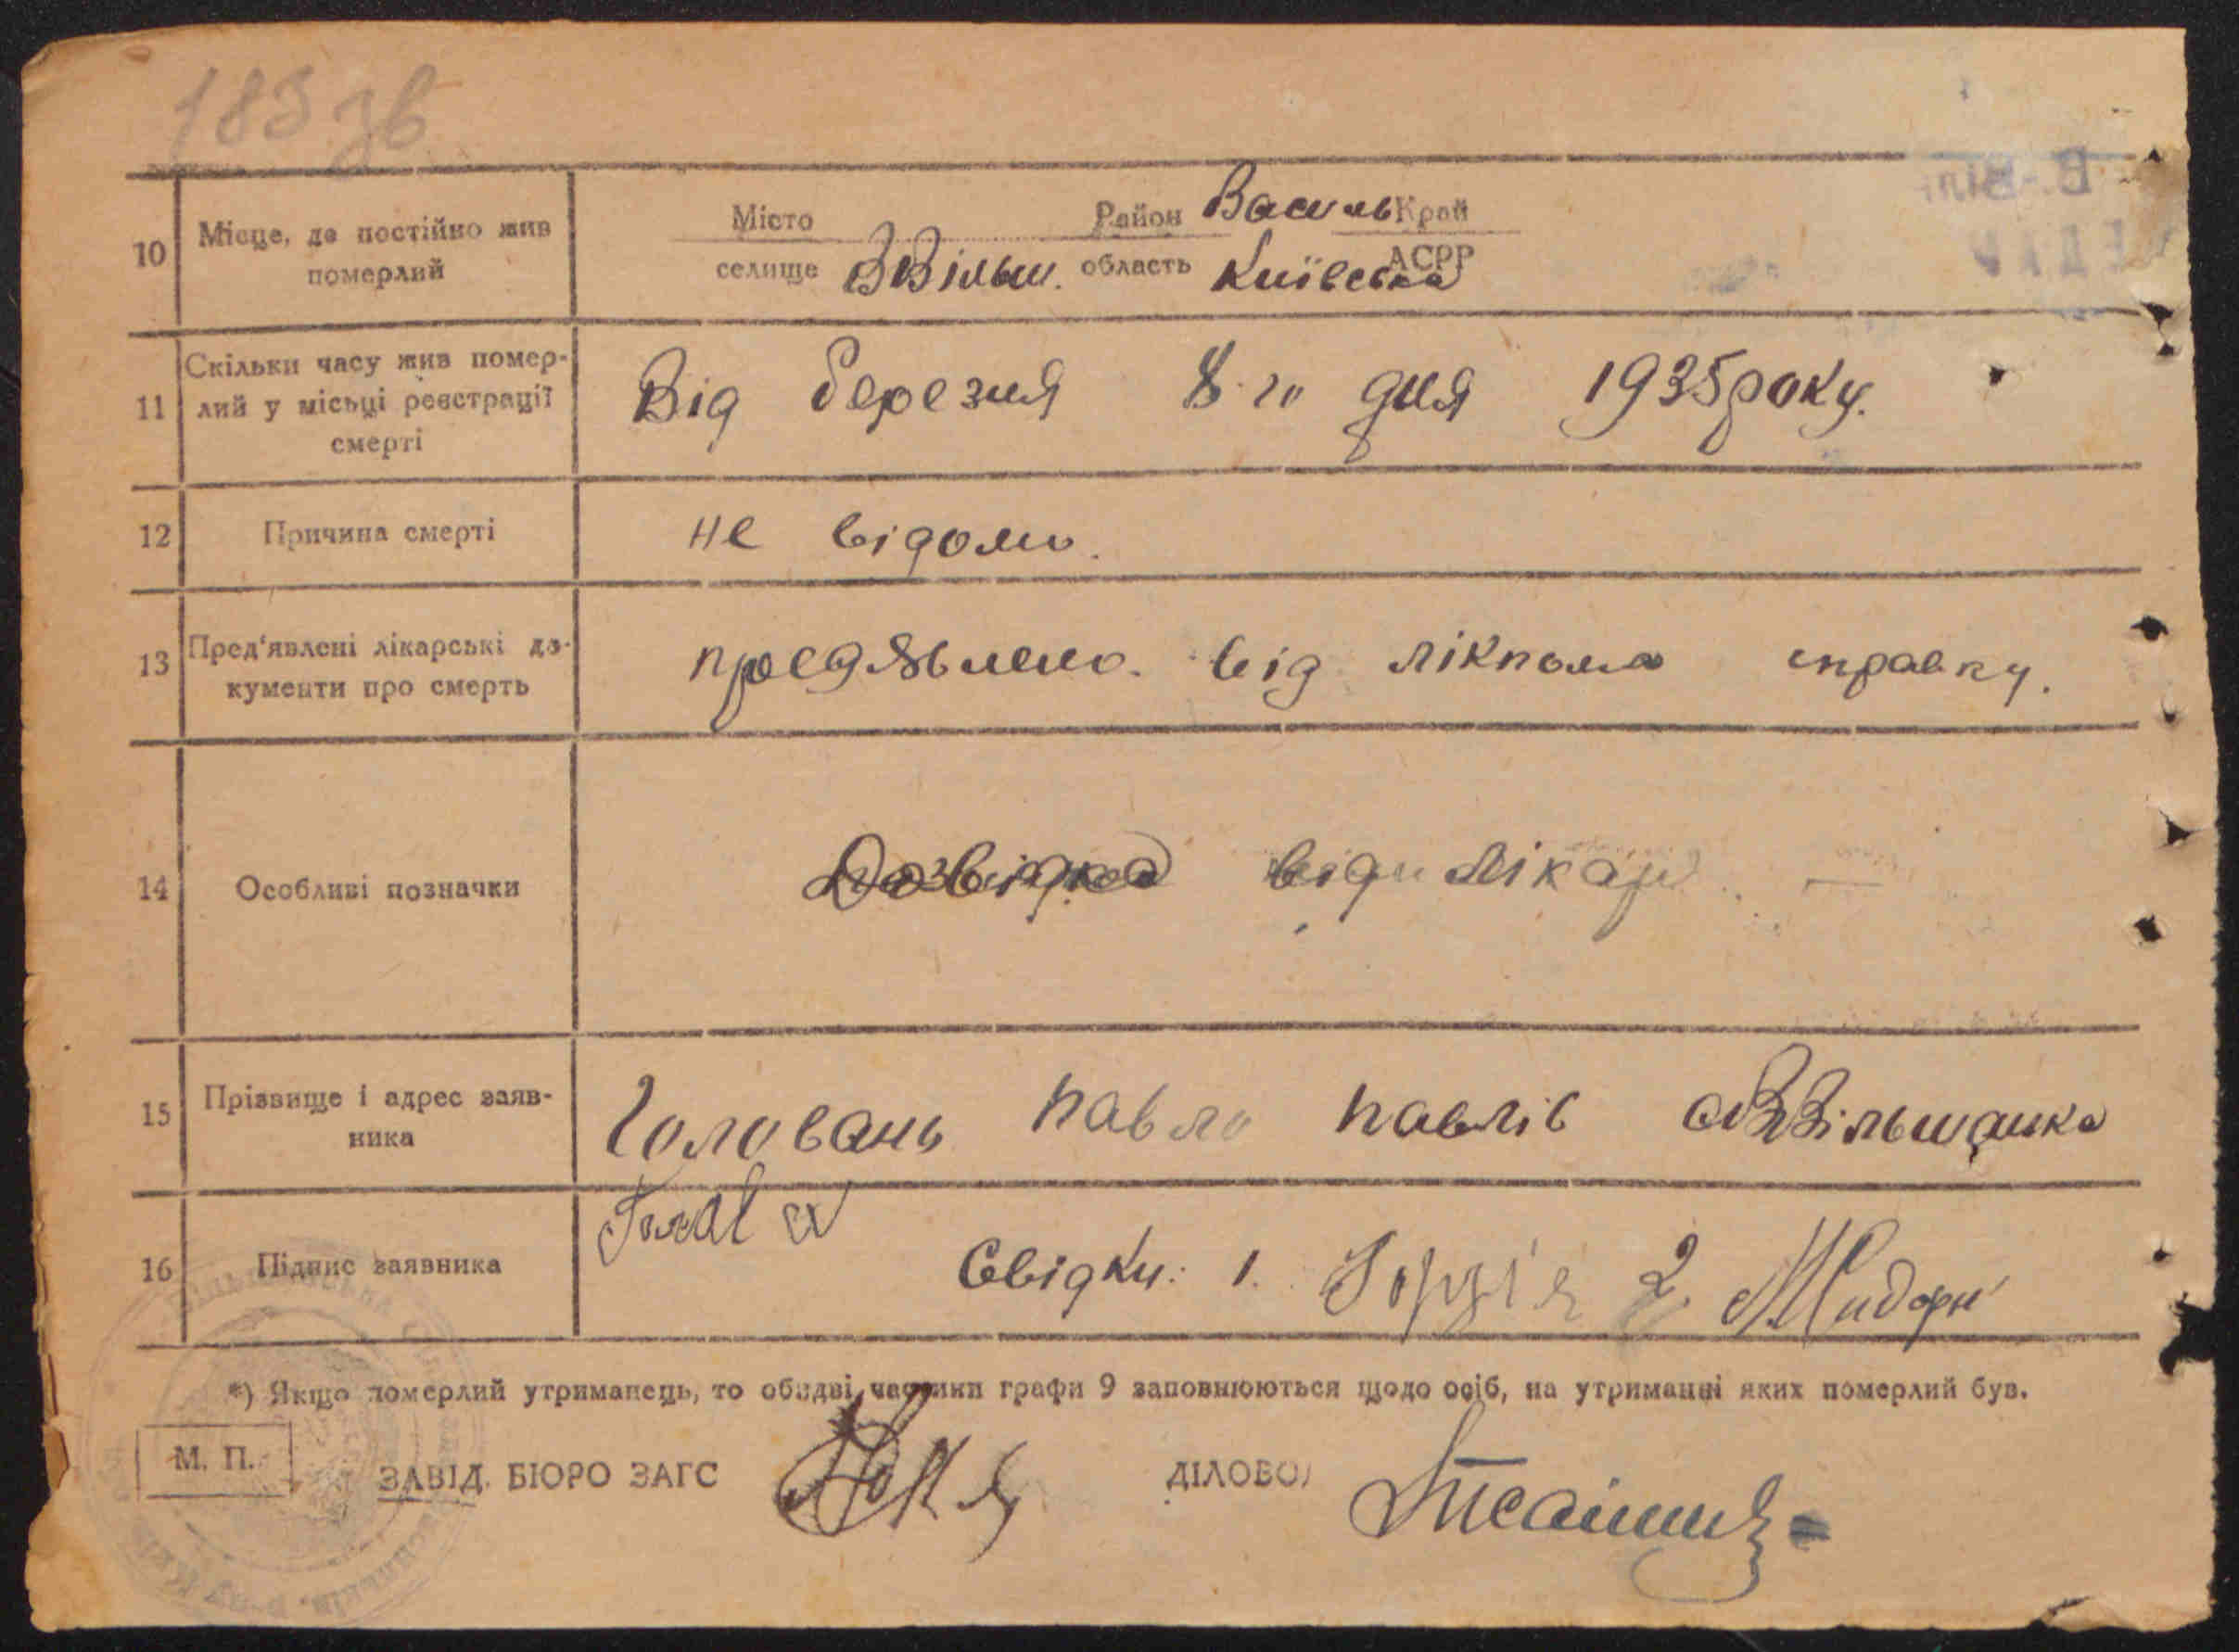 183 зв
10 Місце, де постійно жив померлий
Місто Район Васильк Край
селище В Вільш. область Київська АСРР
11 Скільки часу жив помер-
лий у місьці реєстрації
смерті
Від березня 8-го дня 1935 року.
12 Причина смерті не відомо.
13 Пред'явлені лікарські до-
кументи про смерть
предявлено. від лікпома справку.
14 Особливі позначки
Довідка від лікаря —
15 Прізвище і адрес заяв-
ника
Головань Павло Павлів с. В Вільшанка
16 Підпис заявника
Свідки: 1. 2.
*) Якщо померлий утриманець, то обидві частини графи 9 заповнюються щодо осіб, на утриманні яких померлий був.
М. П.
ЗАВІД. БЮРО ЗАГС ДІЛОВОД